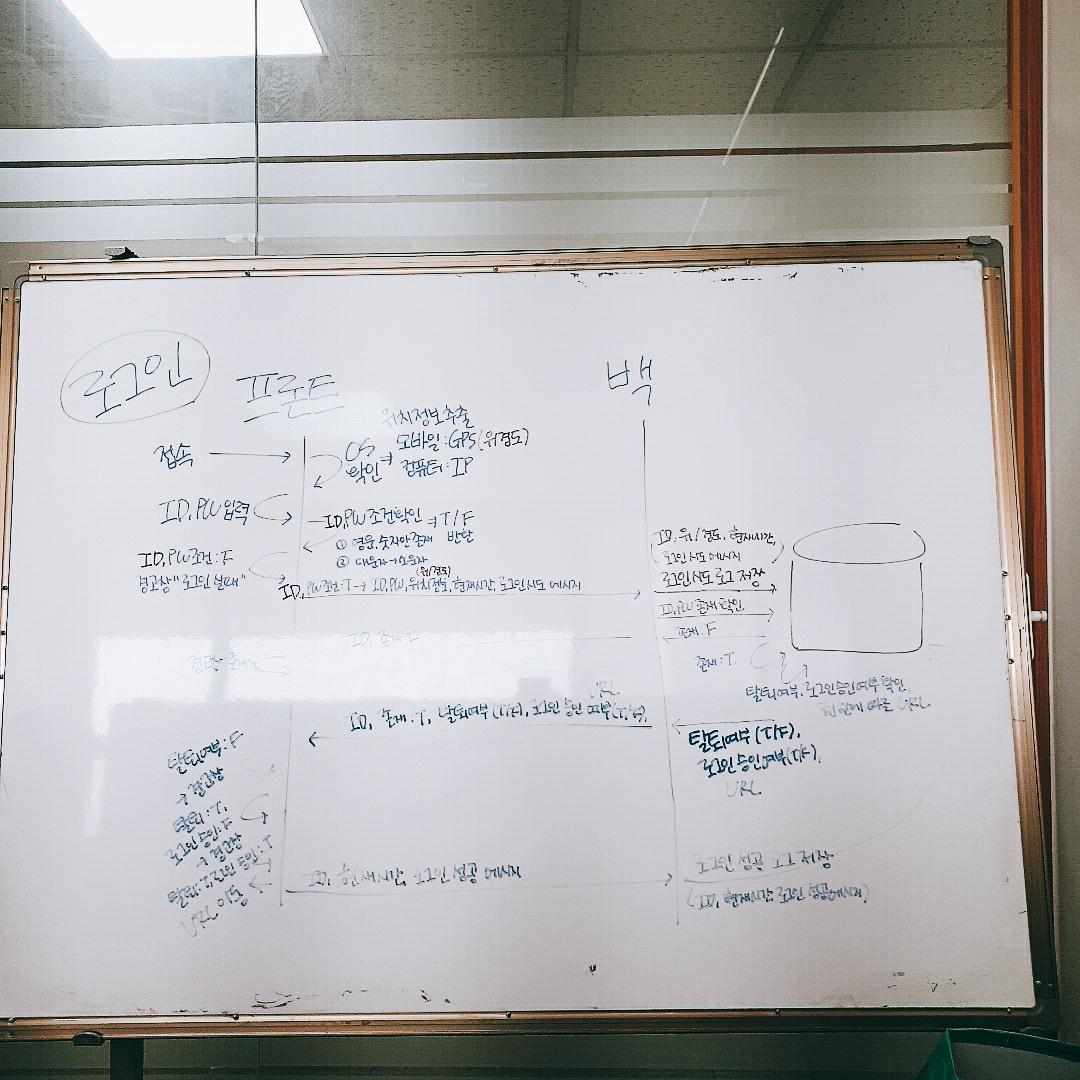 로그인
프론트
백
위치정보추출
접속
OS
확인
모바일:GPS(위경도)
컴퓨터:IP
ID,PW입력
ID,PW조건확인 ⇒ T/F
반환
① 영문,숫자만존재
② 대문자→소문자
ID,PW조건:F
경고창 "로그인 실패"
(위/경도)
ID,PW조건:T → ID,PW,위치정보,현재시간,로그인시도 메시지
(ID,위/경도,현재시간,
로그인시도 메시지)
로그인시도로그 저장
ID,PW존재확인
존재:F
ID, 존재:F
존재:T
탈퇴여부,로그인승인여부확인
권한에 따른 URL
URL
ID, 존재:T, 탈퇴여부(T/F), 로그인 승인 여부(T/F),
탈퇴여부(T/F),
로그인승인여부(T/F),
URL
탈퇴여부:F
→ 경고창
탈퇴:T,
로그인승인:F
→ 경고창
탈퇴:T,로그인 승인:T
URL 이동
ID, 현재시간, 로그인 성공 메시지
로그인 성공 로그 저장
(ID, 현재시간, 로그인 성공메시지)